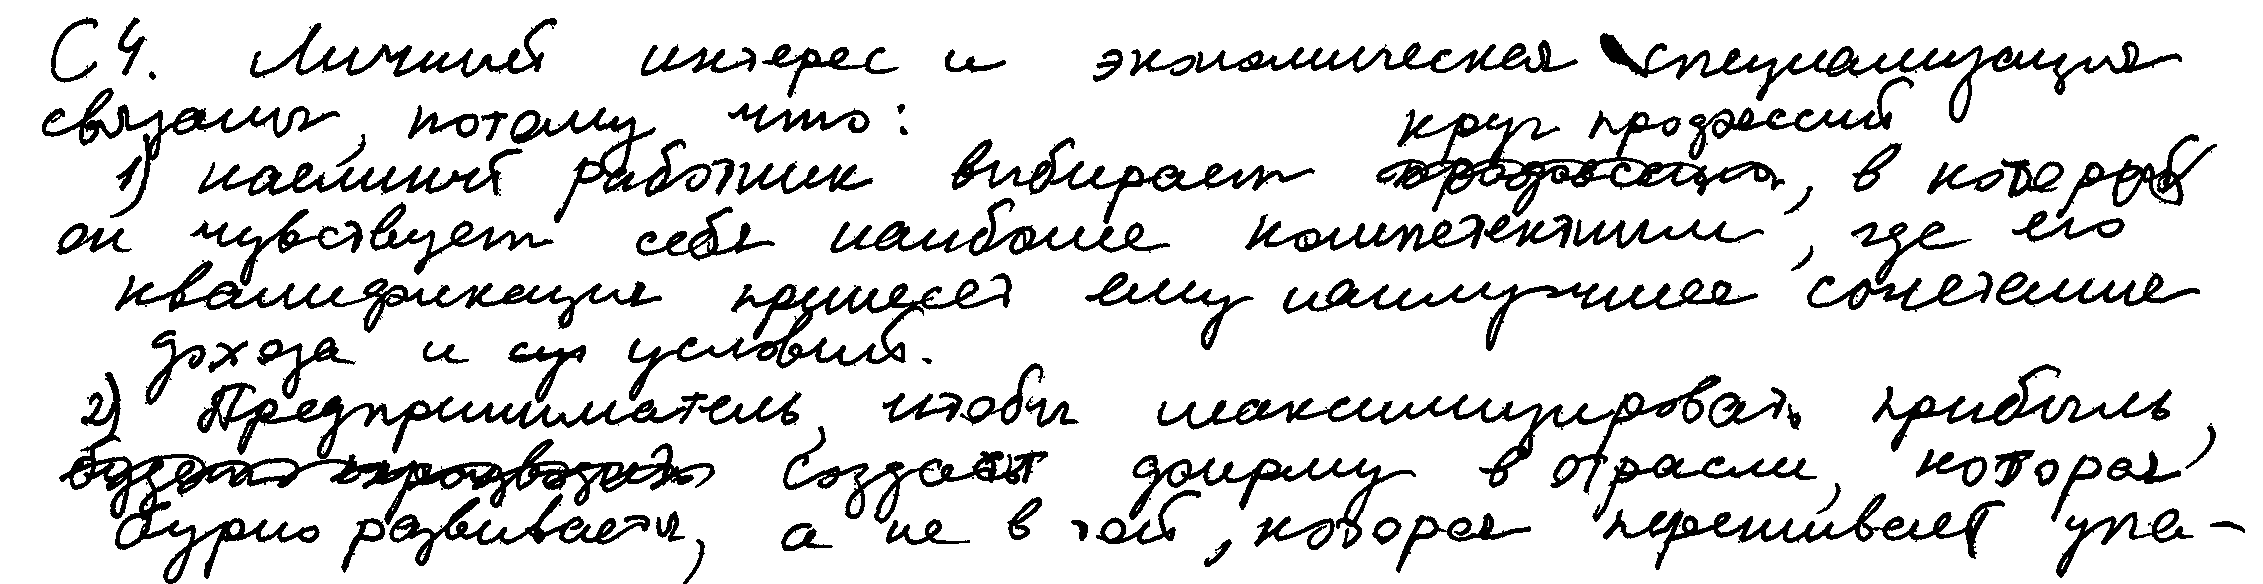 С4. Личный интерес и экономическая специализация
связаны, потому что:
1) наёмный работник выбирает круг профессий, в которых
он чувствует себя наиболее компетентным, где его
квалификация принесет ему наилучшее сочетание
дохода и условий.
2) Предприниматель, чтобы максимизировать прибыль,
создаст фирму в отрасли, которая
бурно развивается, а не в той, которая переживает упа-